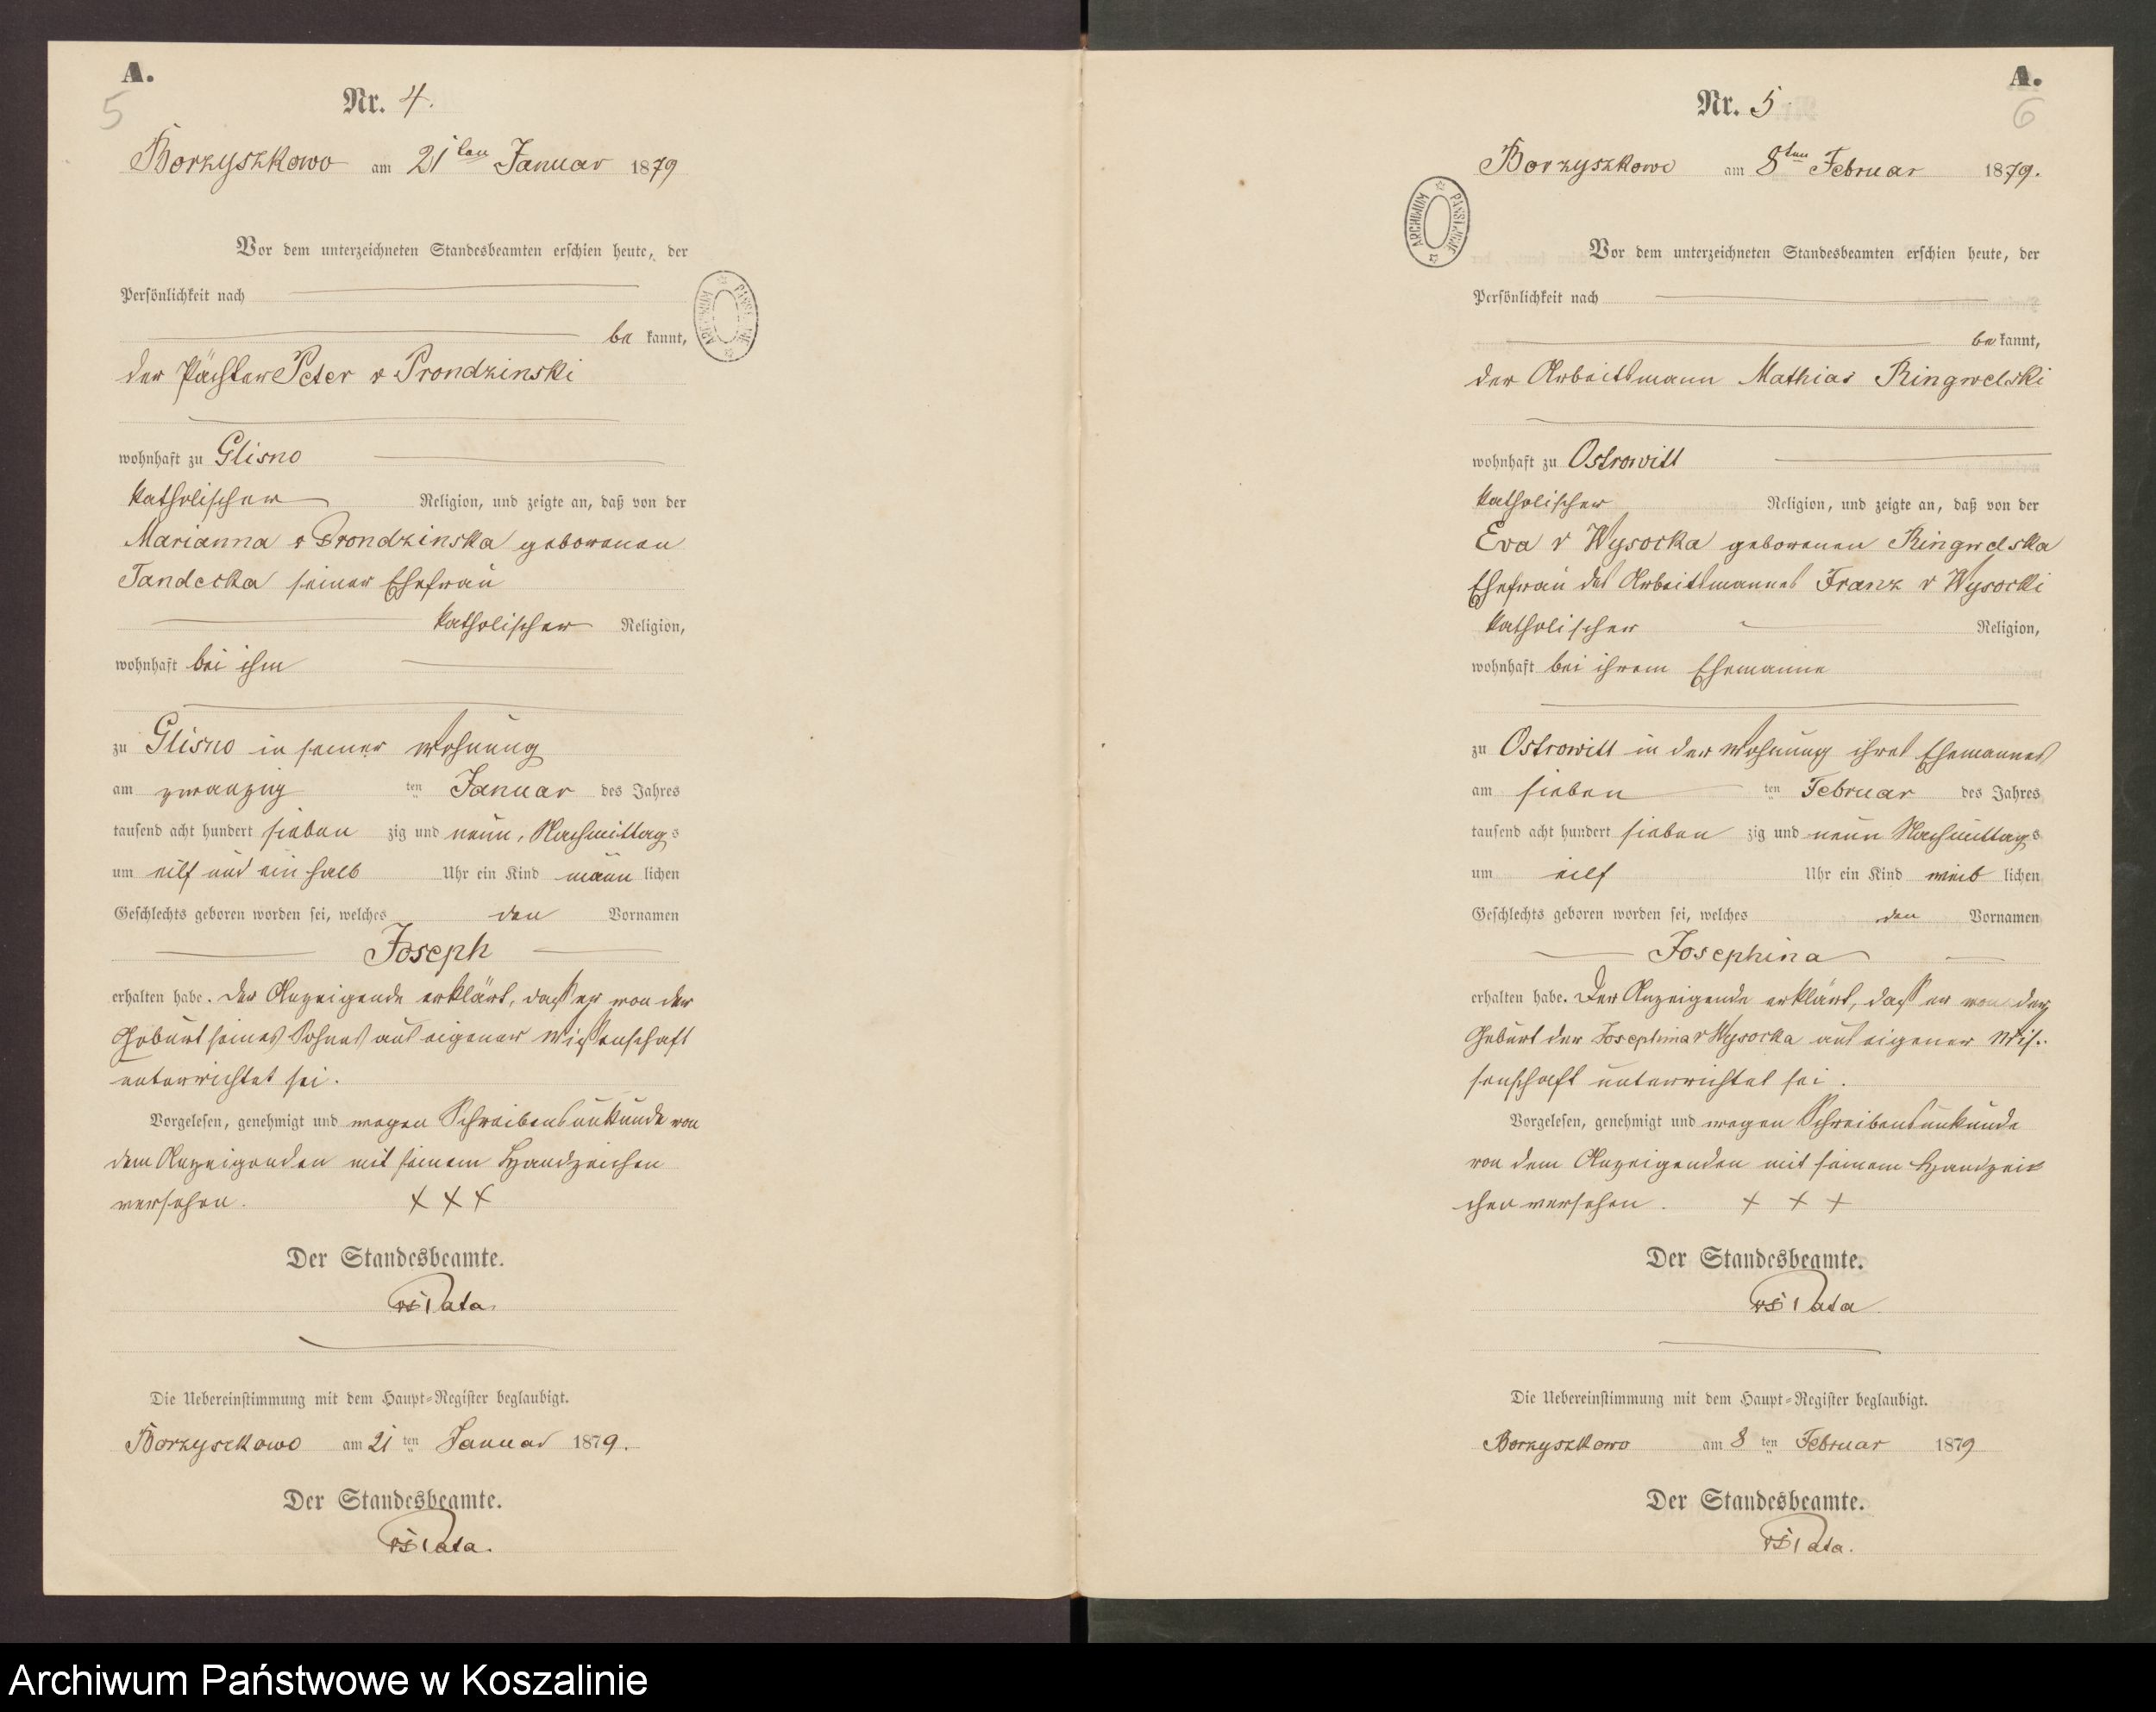 A.
5
Nr. 4.
Borzyszkowo am 21ten Januar 1879
Vor dem unterzeichneten Standesbeamten erschien heute, der
Persönlichkeit nach
be kannt,
der Pächter Peter v Prondzinski
wohnhaft zu Glisno
katholischer Religion, und zeigte an, daß von der
Marianna v Prondzinska geborenen
Tandecka seiner Ehefrau
katholischer Religion,
wohnhaft bei ihm
zu Glisno in seiner Wohnung
am zwanzig ten Januar des Jahres
tausend acht hundert sieben zig und neun, Nachmittags
um eilf und ein halb Uhr ein Kind männ lichen
Geschlechts geboren worden sei, welches den Vornamen
Joseph
erhalten habe. Der Anzeigende erklärt, daß er von der
Geburt seines Sohnes aus eigener Wißenschaft
unterrichtet sei.
Vorgelesen, genehmigt und wegen Schreibensunkunde von
dem Anzeigenden mit seinem Handzeichen
versehen. + + +
Der Standesbeamte.
Die Uebereinstimmung mit dem Haupt-Register beglaubigt.
Borzyszkowo am 21 ten Januar 1879.
Der Standesbeamte.
A.
6
Nr. 5
Borzyszkowo am 8ten Februar 1879.
ARCHIWUM PAŃSTWOWE
Vor dem unterzeichneten Standesbeamten erschien heute, der
Persönlichkeit nach
be kannt,
der Arbeitsmann Mathias Ringwelski
wohnhaft zu Ostrowitt
katholischer Religion, und zeigte an, daß von der
Eva v Wysocka geborenen Ringwelska
Ehefrau des Arbeitsmannes Franz v Wysocki
katholischer Religion,
wohnhaft bei ihrem Ehemanne
zu Ostrowitt in der Wohnung ihres Ehemannes
am sieben ten Februar des Jahres
tausend acht hundert sieben zig und neun Nachmittags
um eilf Uhr ein Kind weib lichen
Geschlechts geboren worden sei, welches den Vornamen
Josephina
erhalten habe. Der Anzeigende erklärt, daß er von der
Geburt der Josephina v Wysocka aus eigener Wis-
senschaft unterrichtet sei.
Vorgelesen, genehmigt und wegen Schreibensunkunde
von dem Anzeigenden mit seinem Handzei-
chen versehen. + + +
Der Standesbeamte.
Die Uebereinstimmung mit dem Haupt-Register beglaubigt.
Borzyszkowo am 8 ten Februar 1879
Der Standesbeamte.
Archiwum Państwowe w Koszalinie